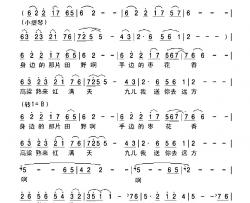 6 2 2 1 7 6 5 | 6 2 - - | 6 2 2 1 7 5 7 6 | 6 - - -
(小提琴)
6 3 2 3 2 1 7 6 7 2 5 5 | 4 3 · 6 5 | 1 2 · 6 · | 6 2 - -)
6 2 2 1 7 6 5 | 6 2 - - | 6 2 2 1 7 5 7 6 | 6 - - -
身边的那片田野啊 手边的枣花香
6 3 2 3 2 1 7 6 | 7 2 5 5 - | 4 3 · 6 5 | 1 2 · 6 · | 6 2 - -
高粱熟来红满天 九儿我送你去远方
(转1=B)
6 2 2 1 7 6 5 | 6 2 - - | 6 2 2 1 7 5 7 6 | 6 - - -
身边的那片田野啊 手边的枣花香
6 3 2 3 2 1 7 6 | 7 2 5 5 - | 4 3 · 6 5 | 1 2 · 6 · | 6 2 - -
高粱熟来红满天 九儿我送你去远方
啊 啊